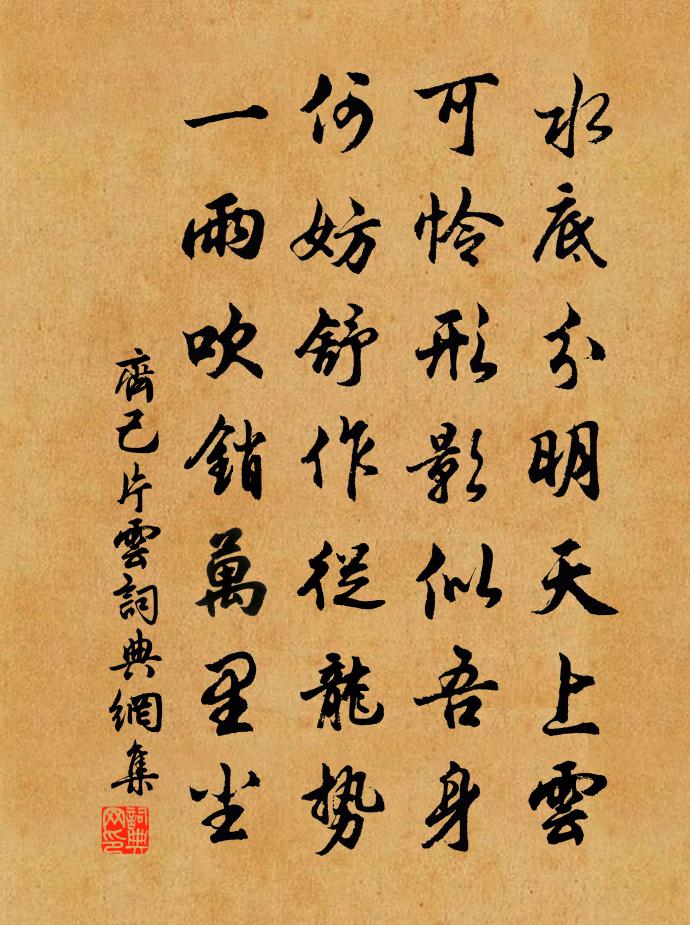 水底分明天上雲
可怜形影似吾身
何妨舒作從龍勢
一雨吹銷萬里尘
齊己片雲詞典網集
詞典网印